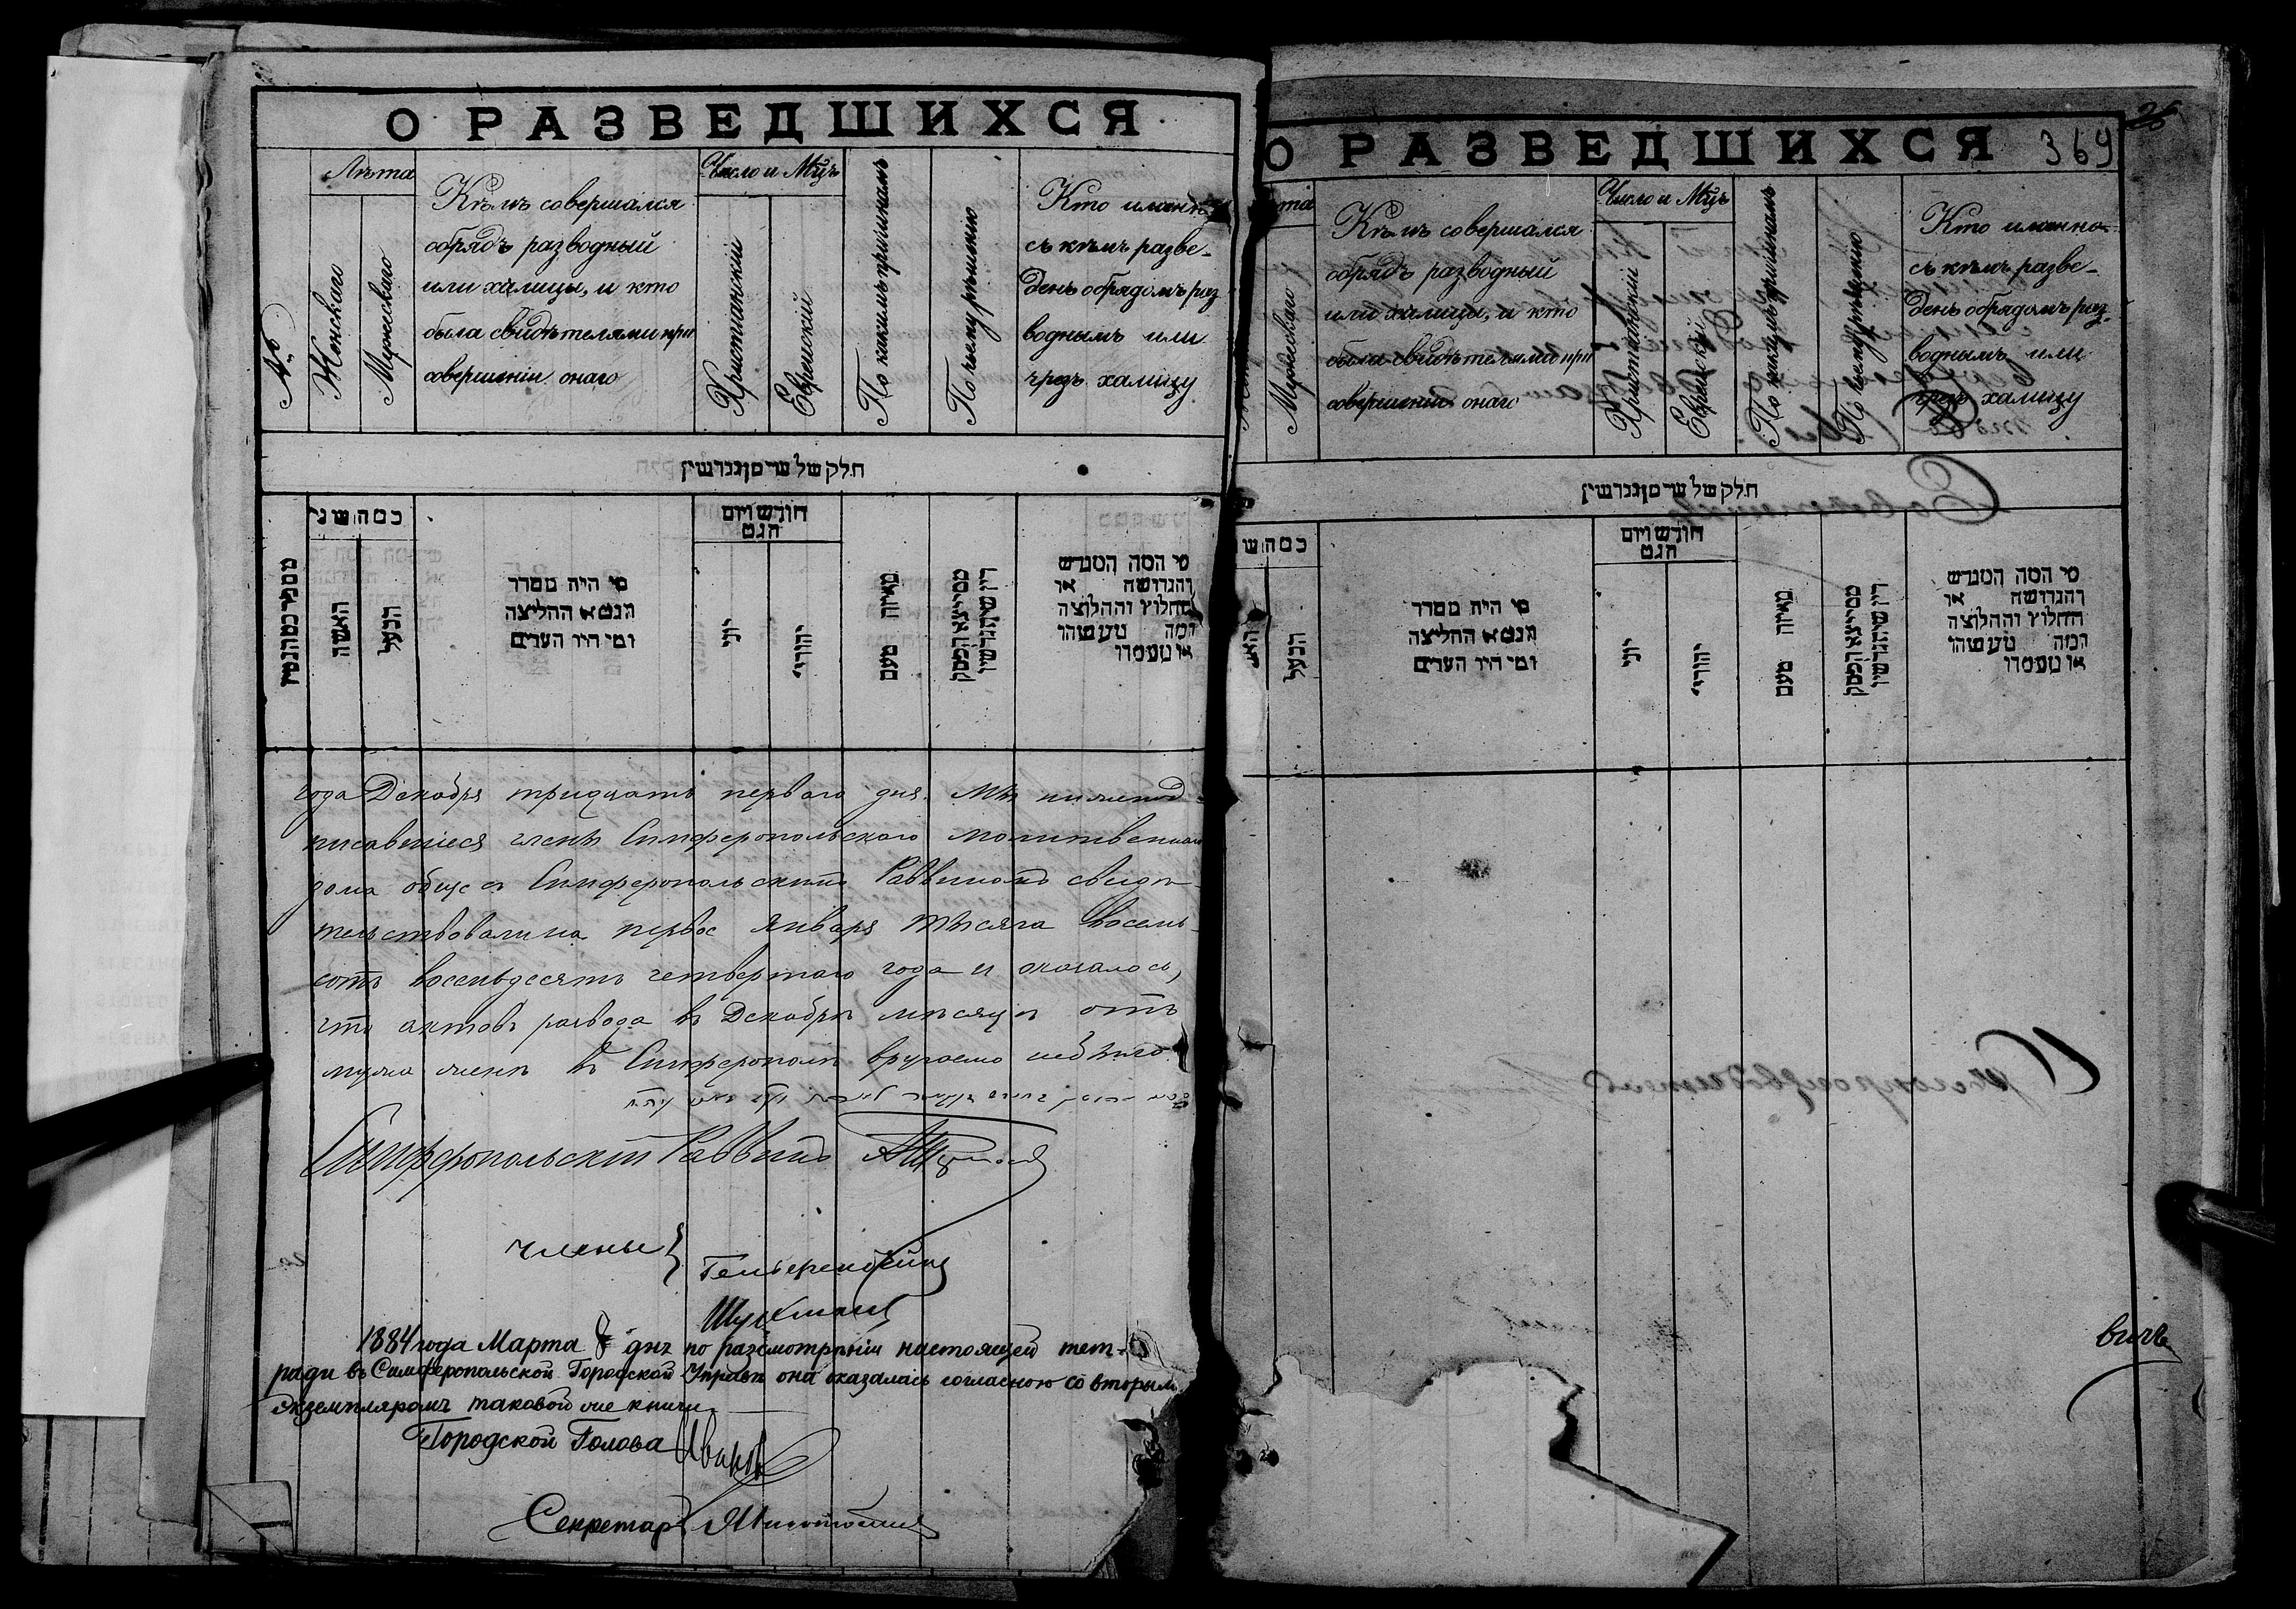 О РАЗВЕДШИХСЯ
№
Лѣта
Женскаго
Мужескаго
Кѣмъ совершался
обрядъ разводный
или халицы, и кто
были свидѣтелями при
совершеніи онаго
Число и Мцъ
Христіанскій
Еврейскій
По какимъ причинамъ
По чьему рѣшенію
Кто именно
съ кѣмъ разве-
денъ обрядомъ раз
воднымъ или
чрезъ халицу
חלק של שר מן גרושין
כמה שני
האשה
הבעל
מי היה מסדר
הגט או החליצה
ומי היו העדים
חודש ויום
הגט
יוני
יהודי
מאיזה טעם
ממי יצא הפסק
דין שיתגרשו
מי המה המגרש
והגרושה או
החולץ והחלוצה
ומה נעשה
או נעמדו
года Декабря тридцать перваго дня. Мы нижепод-
писавшіеся члены Симферопольскаго молитвеннаго
дома обще съ Симферопольскимъ Раввиномъ свидѣ-
тельствовали на первое января тысяча восемь-
сотъ восемьдесятъ четвертаго года и оказалось,
что актовъ развода въ Декабрѣ мѣсяцѣ отъ
мужа женѣ въ Симферополѣ вручаемо не было
Симферопольскій Раввинъ
члены
1884 года Марта 8 дня по разсмотрѣніи настоящей тет-
ради въ Симферопольской Городской Управѣ она оказалась согласною со вторымъ
экземпляромъ таковой же книги.
Городской Голова Ивановъ
Секретарь
26
О РАЗВЕДШИХСЯ 369
та
Мужескаго
Кѣмъ совершался
обрядъ разводный
или халицы, и кто
были свидѣтелями при
совершеніи онаго
Число и Мцъ
Христіанскій
Еврейскій
По какимъ причинамъ
По чьему рѣшенію
Кто именно
съ кѣмъ разве-
денъ обрядомъ раз-
воднымъ или
чрезъ халицу
חלק של שר מן גרושין
כמה ש
הבעל
מי היה מסדר
הגט או החליצה
ומי היו העדים
חודש ויום
הגט
יוני
יהודי
מאיזה טעם
ממי יצא הפסק
דין שיתגרשו
מי המה המגרש
והגרושה או
החולץ והחלוצה
ומה נעשה
או נעמדו
вичъ